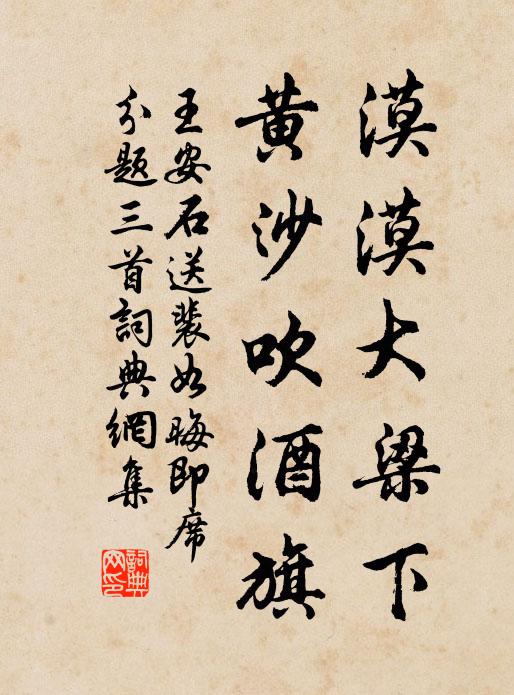 漠漠大梁下
黄沙吹酒旗
王安石送裴如晦即席
分题三首詞典網集
詞典
网印